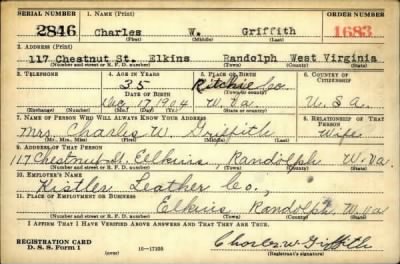 SERIAL NUMBER 1. NAME (Print) ORDER NUMBER
2846 Charles W. Griffith 1683
(First) (Middle) (Last)
2. ADDRESS (Print)
117 Chestnut St. Elkins Randolph West Virginia
(Number and street or R. F. D. number) (Town) (County) (State)
3. TELEPHONE 4. AGE IN YEARS 5. PLACE OF BIRTH 6. COUNTRY OF CITIZENSHIP
35 Ritchie Co.
DATE OF BIRTH (Town or county)
Dec 17 1904 W. Va U.S.A.
(Exchange) (Number) (Mo.) (Day) (Yr.) (State or country)
7. NAME OF PERSON WHO WILL ALWAYS KNOW YOUR ADDRESS 8. RELATIONSHIP OF THAT PERSON
Mrs. Charles W. Griffith Wife
(Mr., Mrs., Miss) (First) (Middle) (Last)
9. ADDRESS OF THAT PERSON
117 Chestnut St. Elkins, Randolph W. Va
(Number and street or R. F. D. number) (Town) (County) (State)
10. EMPLOYER'S NAME
Kistler Leather Co.,
11. PLACE OF EMPLOYMENT OR BUSINESS
Elkins Randolph W. Va
(Number and street or R. F. D. number) (Town) (County) (State)
I AFFIRM THAT I HAVE VERIFIED ABOVE ANSWERS AND THAT THEY ARE TRUE.
REGISTRATION CARD
D. S. S. Form 1 (over) 16—17105 Charles W Griffith
(Registrant's signature)